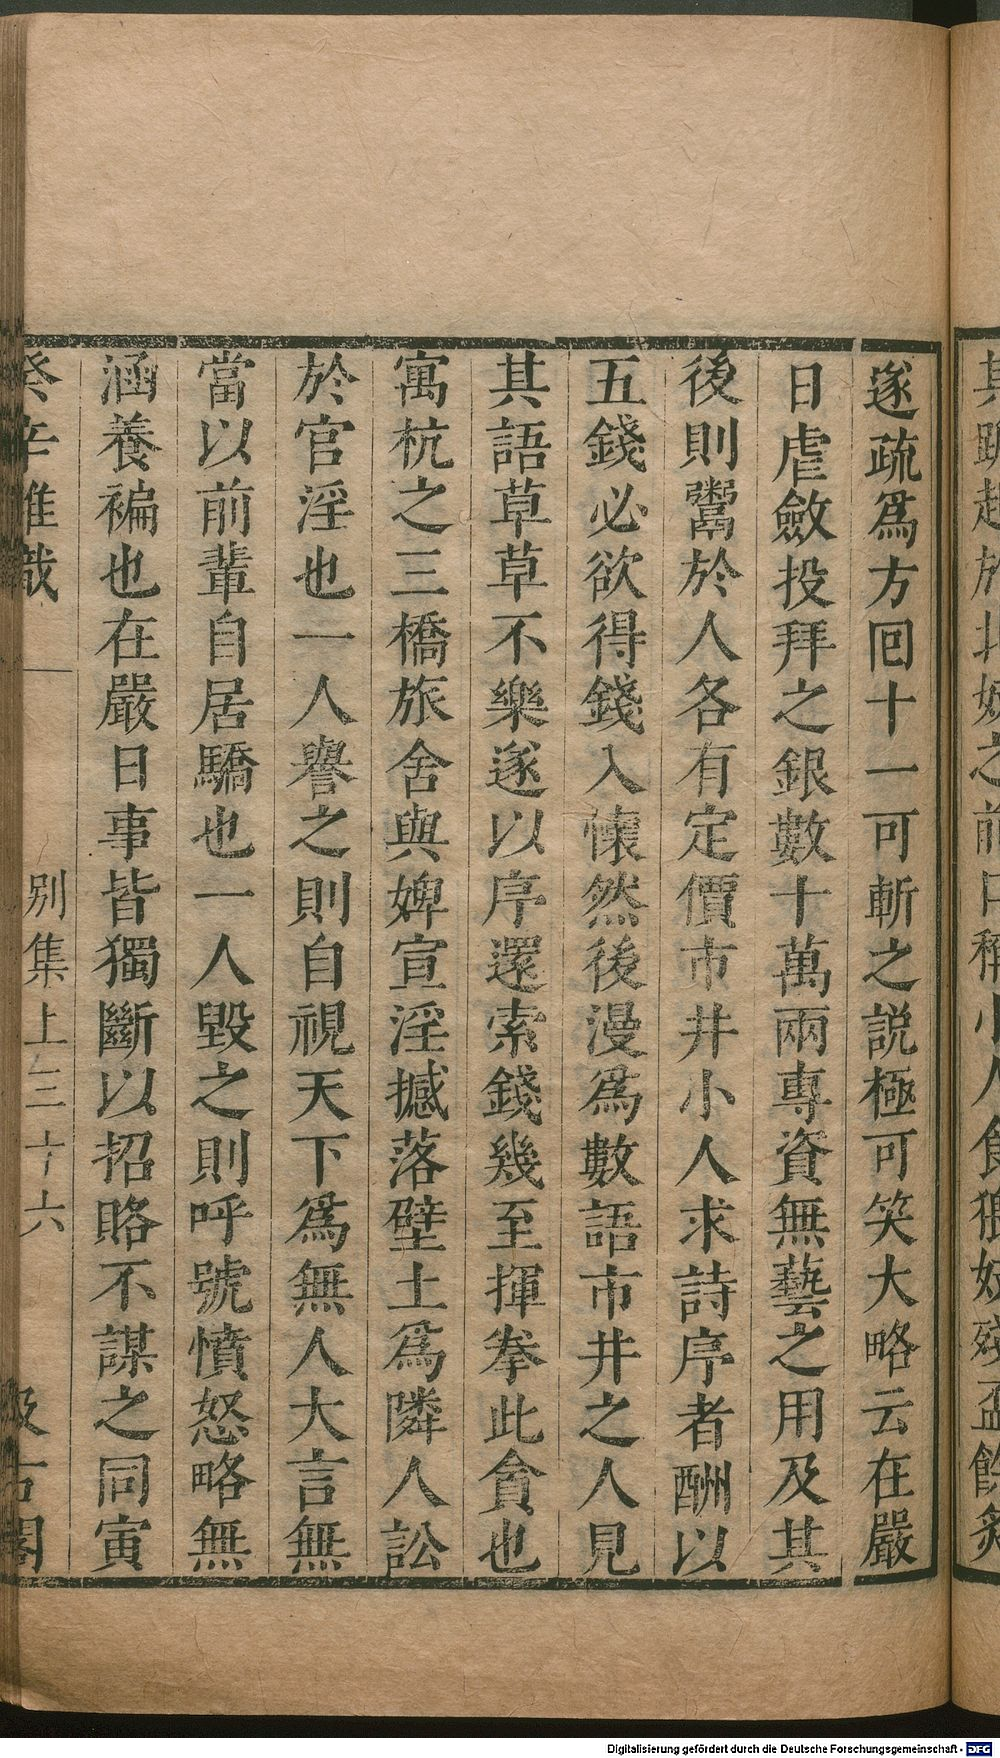 遂疏爲方回十一可斬之説極可笑大略云在嚴
日虐斂投拜之銀數十萬兩專資無藝之用及其
後則鬻於人各有定價市井小人求詩序者酬以
五錢必欲得錢入懐然後漫爲數語市井之人見
其語草草不樂遂以序還索錢幾至揮拳此貪也
寓杭之三橋旅舍與婢宣淫撼落壁土爲隣人訟
於官淫也一人譽之則自視天下爲無人大言無
當以前輩自居驕也一人毀之則呼號憤怒略無
涵養褊也在嚴日事皆獨斷以招賂不謀之同寅
癸辛雜識
别集上三十六
汲古閣
Digitalisierung gefördert durch die Deutsche Forschungsgemeinschaft - DFG